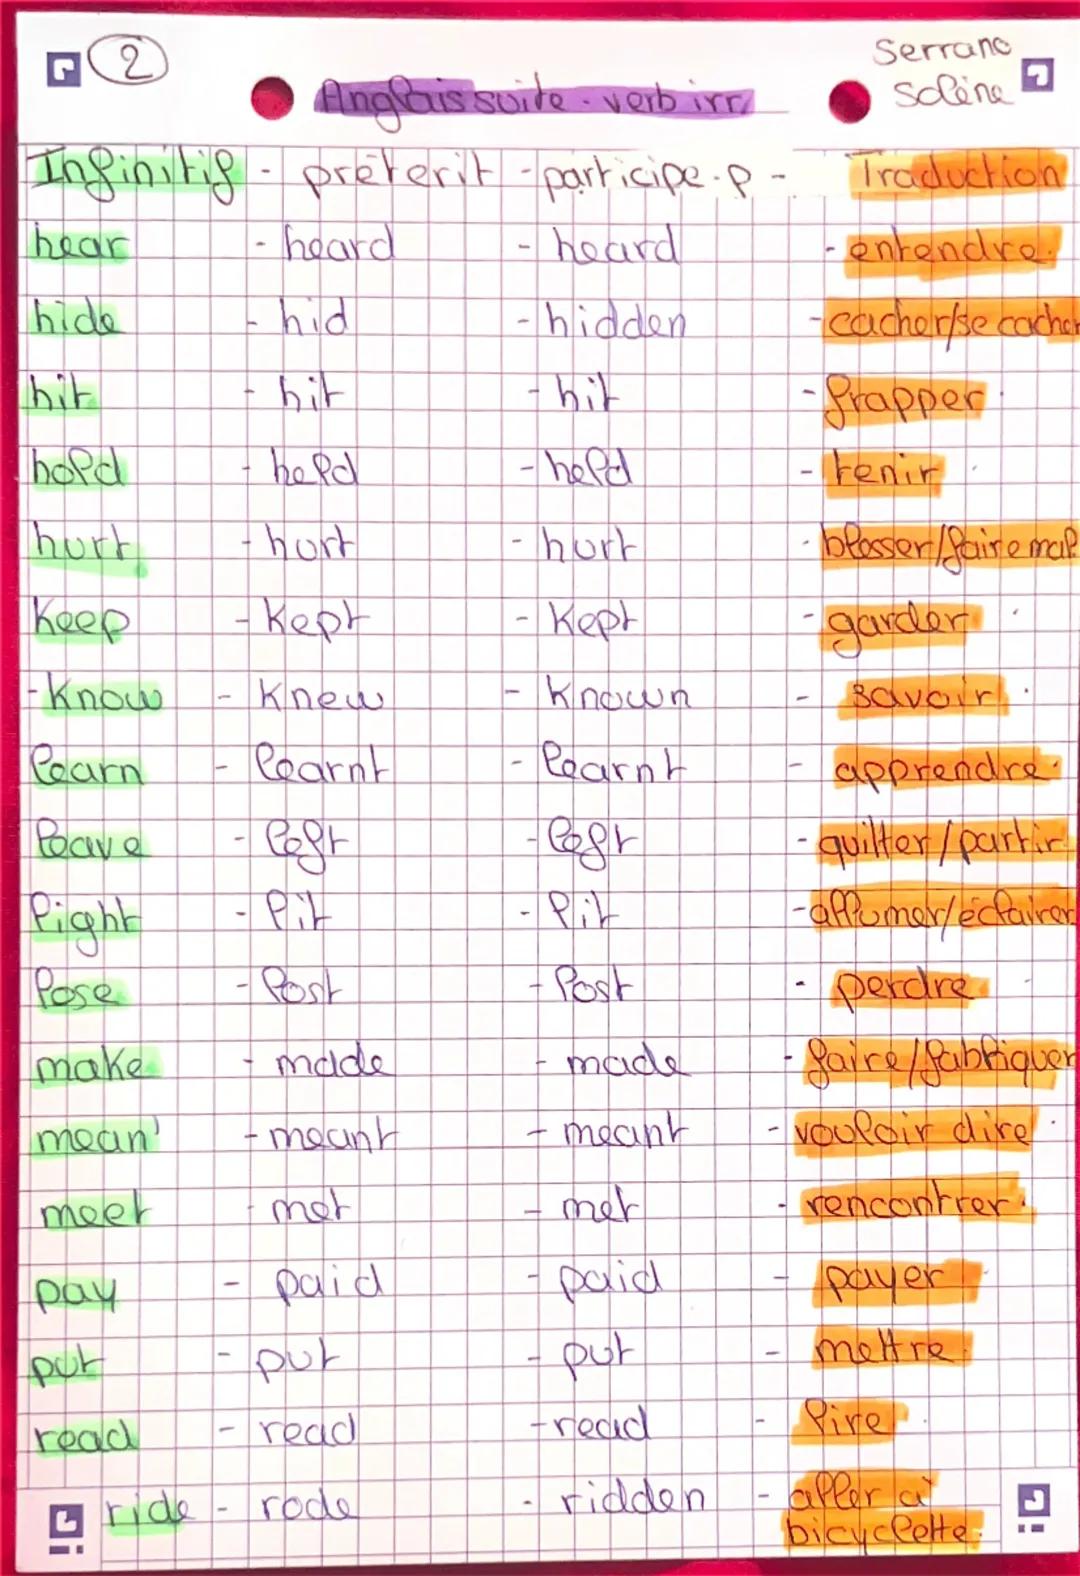 2
Serrano
Solène
Anglais suite - verb irr.
Infinitif - prétérit - participe.p - Traduction
hear - heard - heard - entendre.
hide - hid - hidden - cacher/se cacher
hit - hit - hit - frapper
hold - held - held - tenir
hurt - hurt - hurt - blesser/faire mal
Keep - Kept - Kept - garder
-Know - Knew - Known - savoir
learn - learnt - learnt - apprendre
leave - left - left - quitter/partir
light - lit - lit - allumer/éclairer
lose - lost - lost - perdre
make - made - made - faire/fabriquer
mean - meant - meant - vouloir dire
meet - met - met - rencontrer
pay - paid - paid - payer
put - put - put - mettre
read - read - read - lire
ride - rode - ridden - aller à
bicyclette.